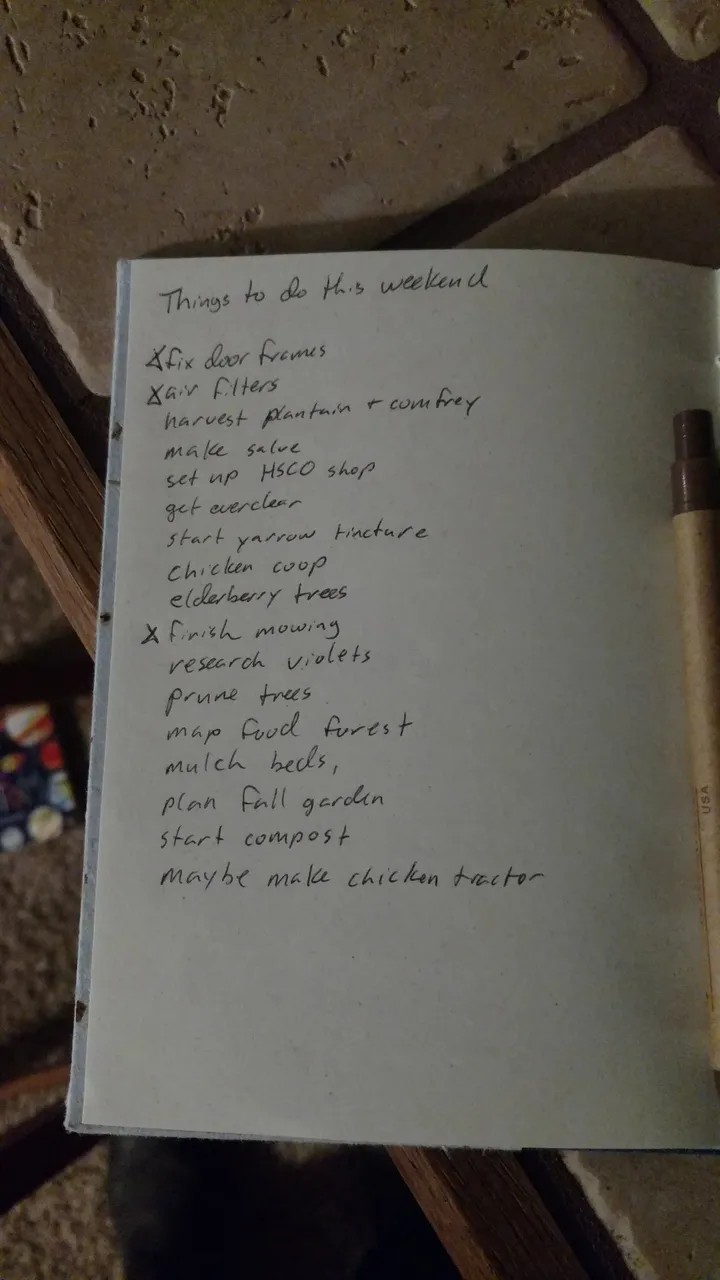 Things to do this weekend
X fix door frames
X air filters
harvest plantain + comfrey
make salve
set up HSCO shop
get everclear
start yarrow tincture
chicken coop
elderberry trees
X finish mowing
research violets
prune trees
map food forest
mulch beds,
plan fall garden
start compost
maybe make chicken tractor
USA